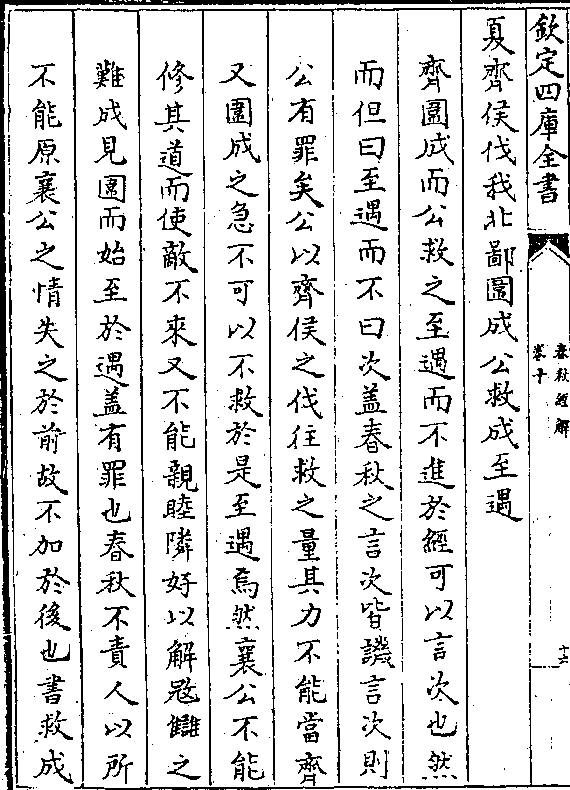 欽定四庫全書
春秋經解
卷十
十六
夏齊侯伐我北鄙圍成公救成至遇
齊圍成而公救之至遇而不進於經可以言次也然
而但曰至遇而不曰次盖春秋之言次皆譏言次則
公有罪矣公以齊侯之伐往救之量其力不能當齊
又圍成之急不可以不救於是至遇焉然襄公不能
修其道而使敵不來又不能親睦隣好以解冦讎之
難成見圍而始至於遇盖有罪也春秋不責人以所
不能原襄公之情失之於前故不加於後也書救成